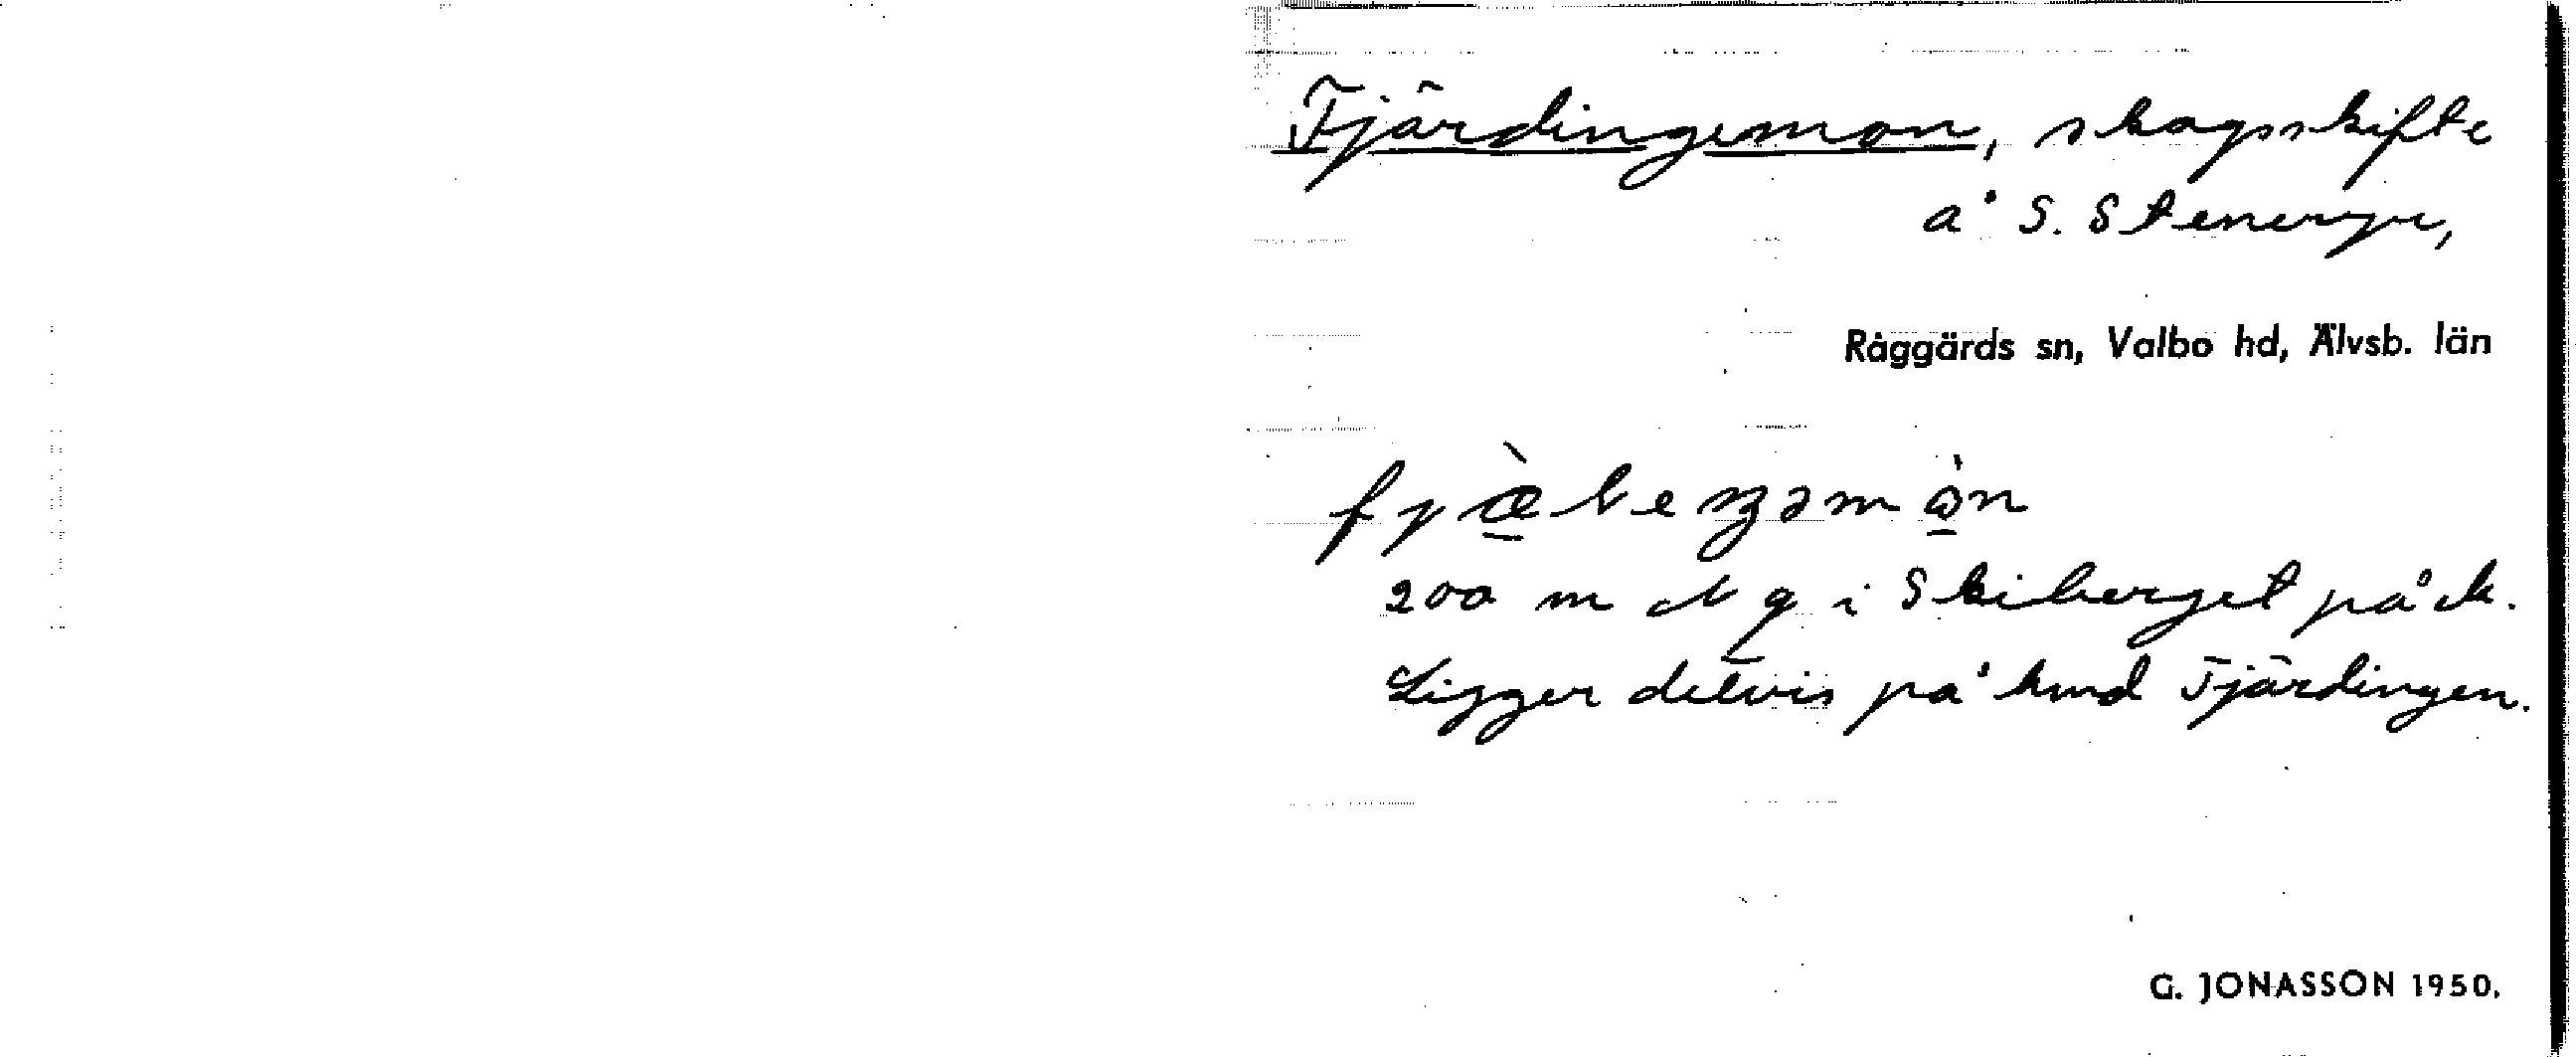 Fjärdingemon, skogsskifte
å S. Stenerye,
Råggärds sn, Valbo hd, Älvsb. län
200 m N g i Skiberget på k.
Ligger delvis på hmd Fjärdingen.
G. JONASSON 1950.